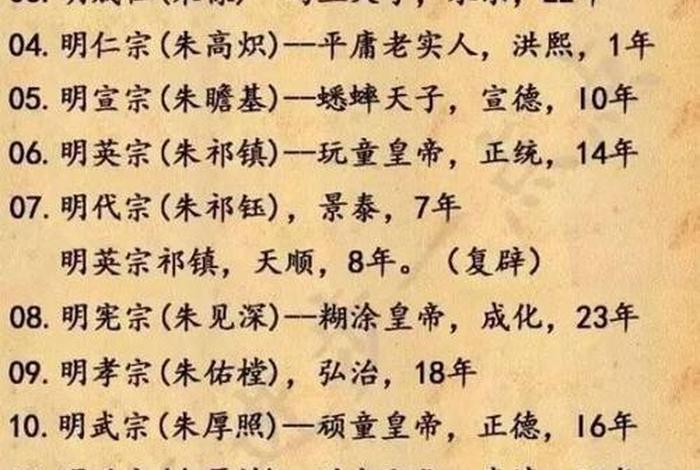 04. 明仁宗(朱高炽)——平庸老实人，洪熙，1年
05. 明宣宗(朱瞻基)——蟋蟀天子，宣德，10年
06. 明英宗(朱祁镇)——玩童皇帝，正统，14年
07. 明代宗(朱祁钰)，景泰，7年
明英宗祁镇，天顺，8年。（复辟）
08. 明宪宗(朱见深)——糊涂皇帝，成化，23年
09. 明孝宗(朱佑樘)，弘治，18年
10. 明武宗(朱厚照)——顽童皇帝，正德，16年